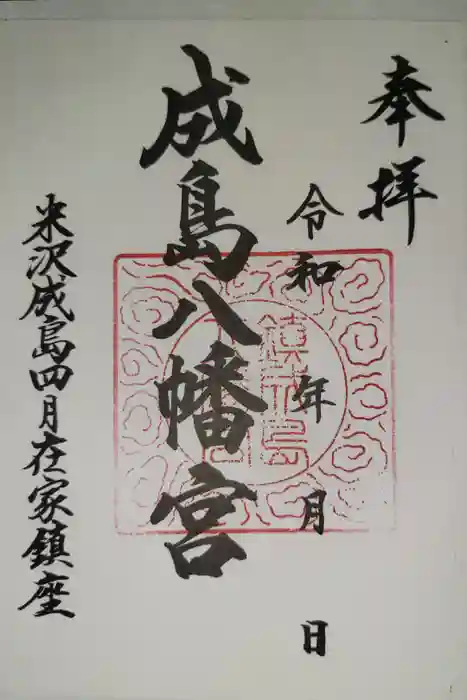 奉拝
令和 年 月 日
成島八幡宮
米沢成島四月在家鎮座